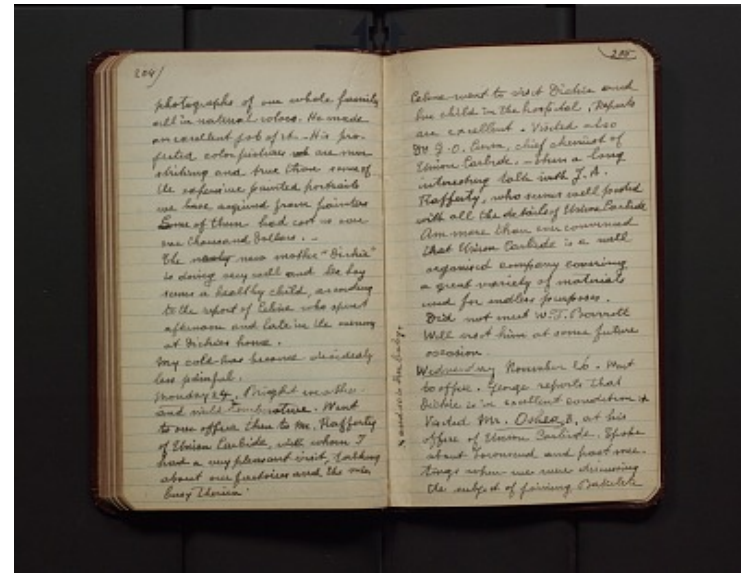 204)
photographs of our whole family
all in natural colors. He made
an excellent job of it. - His pro-
jected color pictures are more
striking and true than some of
the expensive painted portraits
we have acquired from painters
Some of them had cost us over
one thousand Dollars. -
The new mother "Dickie"
is doing very well and the boy
seems a healthy child, according
to the report of Celine who spent
afternoon and late in the evening
at Dickies home.
My cold has become decidedly
less painful.
Monday 24. Bright weather
and mild temperature. Went
to our office then to Mr. Rafferty
of Union Carbide, with whom I
had a very pleasant visit, talking
about our factories and the men
busy therein.
205
Celine went to visit Dickie and
her child in the hospital. Reports
are excellent. Visited also
Dr. J. O. Curm, chief chemist of
Union Carbide. - then a long
interesting talk with J. A.
Rafferty, who seems well posted
with all the details of Union Carbide
Am more than ever convinced
that Union Carbide is a well
organised company covering
a great variety of materials
used for endless purposes.
Did not meet W. J. Barrett
Will visit him at some future
occasion.
Wednesday November 26. Went
to office. George reports that
Dickie is in excellent condition x
Visited Mr. Oshea, B. at his
office of Union Carbide. Spoke
about Townsend and past mee-
tings when we were discussing
the subject of joining Bakelite
x and so is the baby.